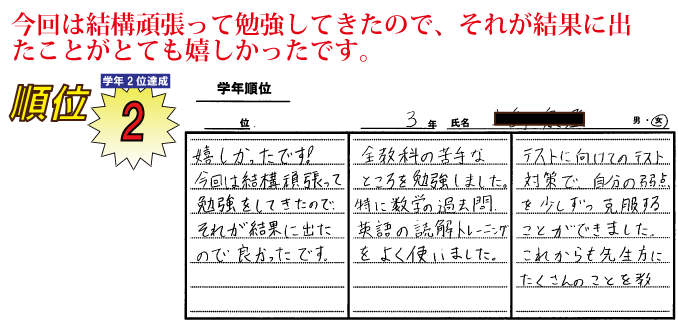 今回は結構頑張って勉強してきたので、それが結果に出
たことがとても嬉しかったです。
順位
学年2位達成
2
学年順位
位
3 年 氏名 男・女
嬉しかったです!
今回は結構頑張って
勉強をしてきたので
それが結果に出た
ので良かったです。
全教科の苦手な
ところを勉強しました。
特に数学の過去問、
英語の読解トレーニング
をよく使いました。
テストに向けてのテスト
対策で、自分の弱点
を少しずつ克服する
ことができました。
これからも先生方に
たくさんのことを教